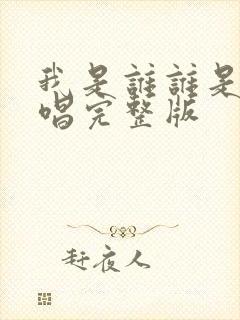 我是誰誰是
唱完整版
赶夜人